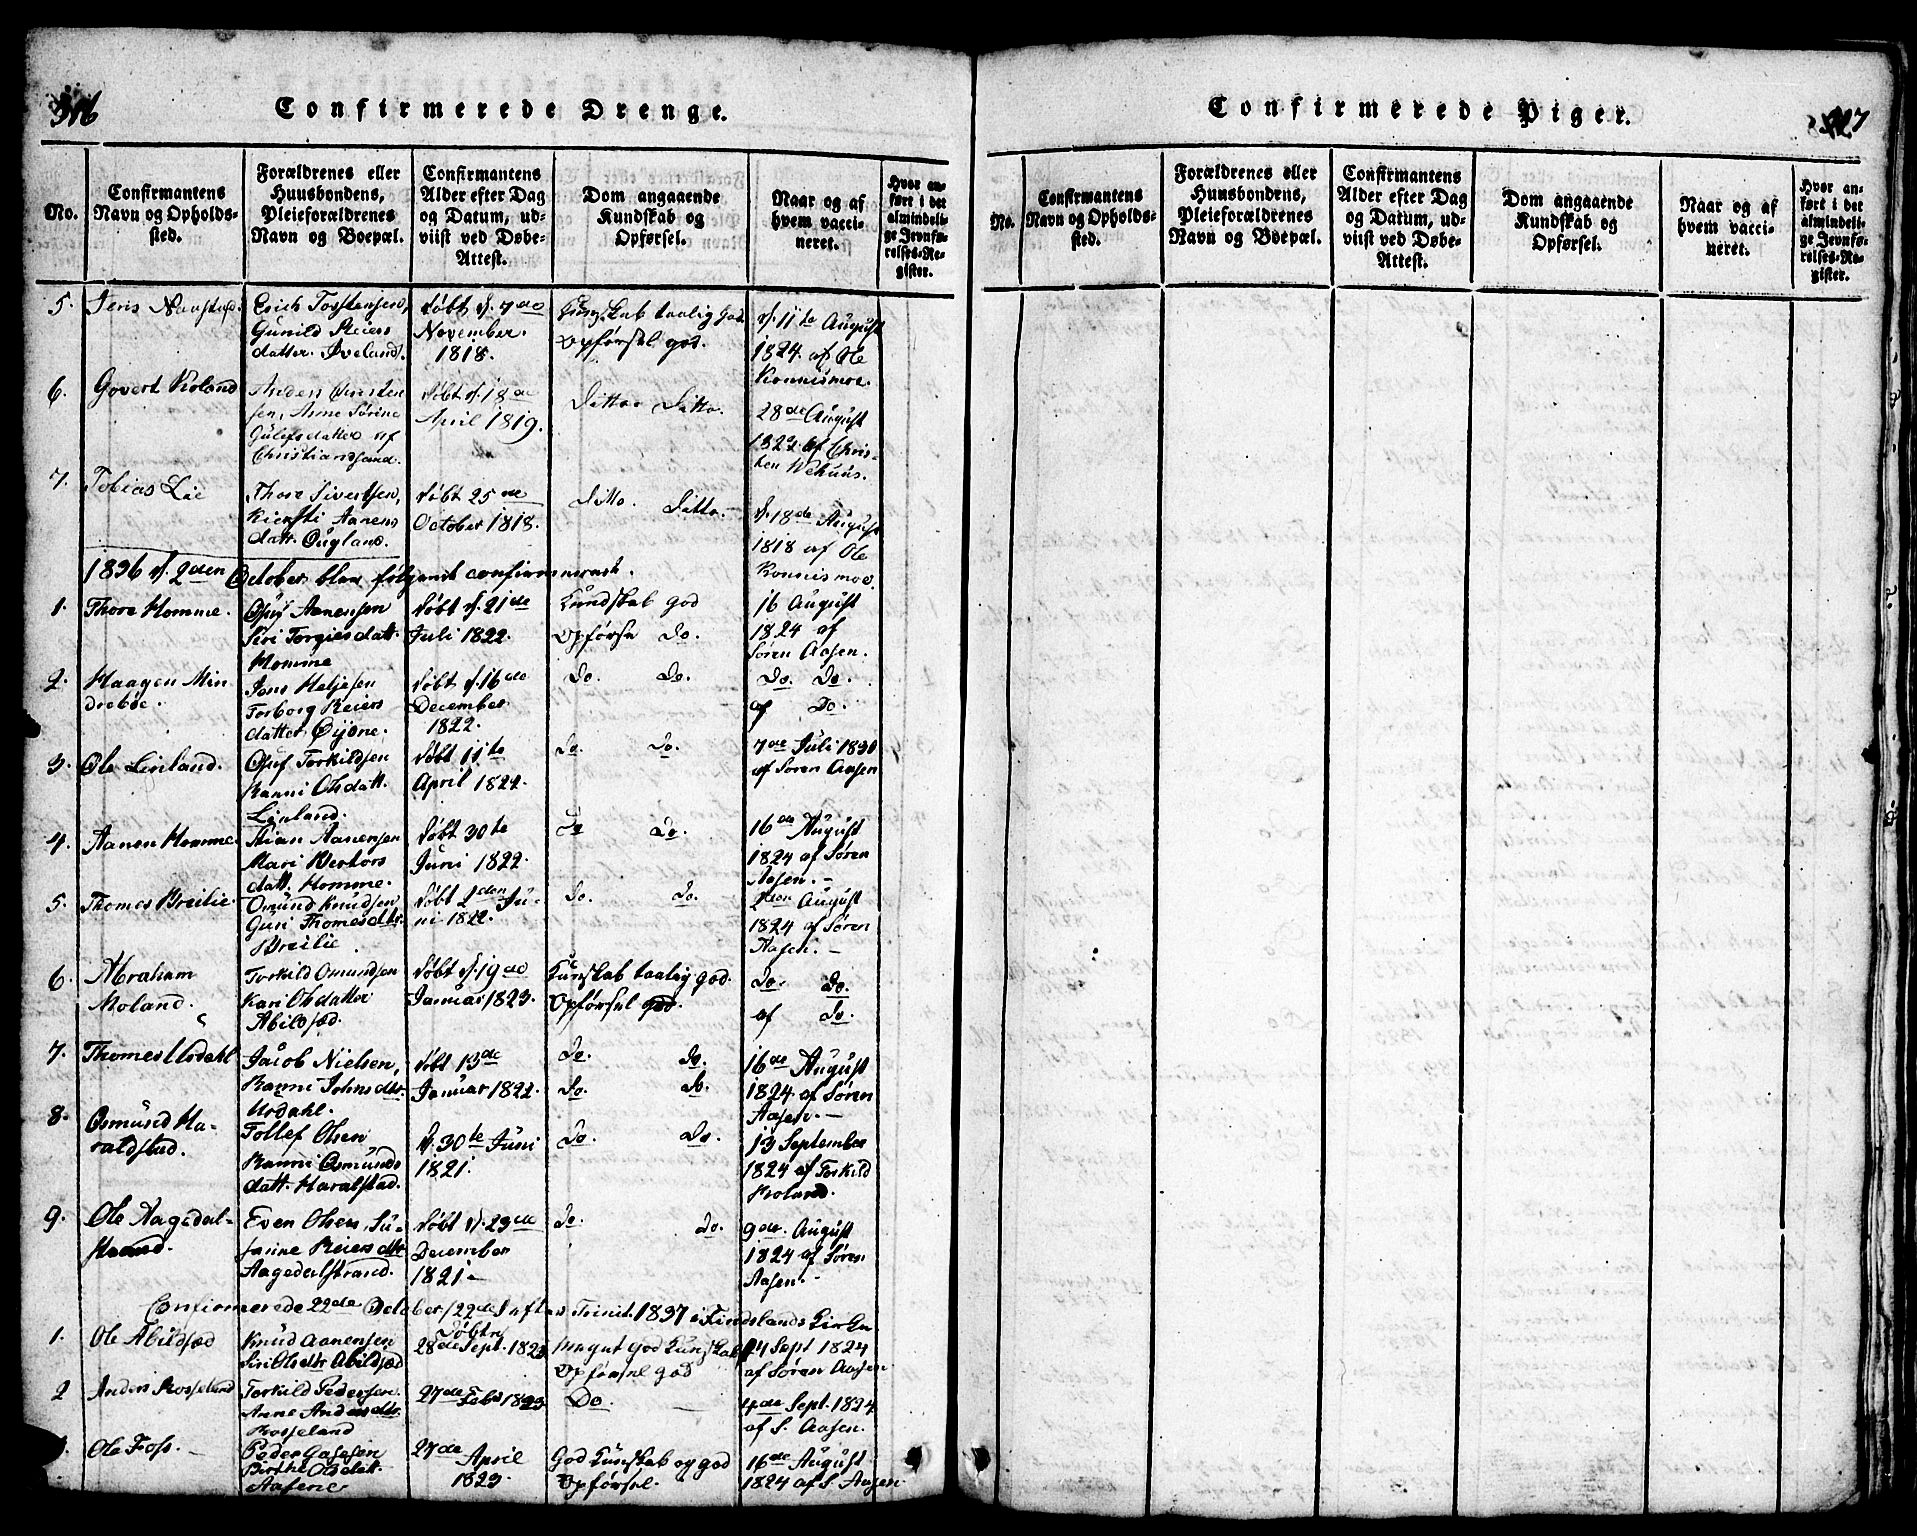 316
Confirmerede Drenge.
No.
Confirmantens
Navn og Opholds-
sted.
Forældrenes eller
Huusbondens,
Pleieforældrenes
Navn og Boepæl.
Confirmantens
Alder efter Dag
og Datum, ud-
viist ved Døbe-
Attest.
Dom angaaende
Kundskab og
Opførsel.
Naar og af
hvem vacci-
neret.
Hvor an-
ført i det
almindeli-
ge Jevnfø-
relses-Re-
gister.
5. Jens Naastad.
Erich Torstensen,
Gunild Reiers
datter. Iveland.
døbt d. 7de
November.
1818.
Kundskab taalig god.
Opførsel god.
d. 11te August
1824. af Ole
Konnismoe.
6. Govert Roland
Anders
sen, Anne Sørine
datter af
Christiansand.
døbt d. 18de
April 1819.
Ditto. Ditto.
28de August
af Chris-
ten Wehuus.
7. Tobias Lie
Thore Sivertsen,
Kiersti Aanens
datt. Øugland.
døbt 25de
October 1818.
Ditto. Ditto.
d. 18de August
1818 af Ole
Konnismoe.
1836 d. 2den October blev følgende confirmerede.
1. Thore Homme.
Oluf Aanensen
Siri Torgiesdatt.
Homme
døbt d. 21de
Juli 1822.
Kundskab god
Opførsel do.
16 August
1824 af
Søren Aasen.
2. Haagen Min
drebøe.
Jens Heljesen
Torborg Reiers
datter Øijone.
døbt d. 16de
December
1822.
Do. Do.
Do. Do.
af Do.
3. Ole Linland.
Oluf Torkildsen
Ranni Olsdatt.
Linland.
døbt 11te
April 1822.
Do. Do.
7de Juli 1831
af Søren Aasen
4. Aanen Homme.
Stian Aanensen
Mari Bertors
datt. Homme.
døbt 30te
Juni 1822.
Do Do.
16de August
1824 af Søren
Aasen.-
5. Thomes Breilie.
Omund Knudsen
Guri Thomesdtr.
Breilie
døbt 2den Ju-
ni 1822.
Do. Do.
2den August
1824 af Søren
Aasen.-
6. Abraham
Moland.
Torkild Omundsen
Kari Olsdatter
Abildsød.
døbt d. 19de
Januar 1823.
Kundskab taalig god.
Opførsel god.
Do. Do.
af Do.
7. Thomes Urdahl
Jacob Nielsen,
Ranni Johnsdtr.
Urdahl.
døbt 13de
Januar 1822.
Do. Do.
Do. Do.
16de August
1824 af Søren
Aasen.-
8. Osmund Ha-
raldstad.
Tollef Olsen
Ranni Osmunds
datt. Haralstad.
d. 30te Juni
1821.
Do. Do.
13 September
1824 af Torkild
Roland.
9. Ole Aagedal-
strand.
Even Olsen, Su-
sanne Reiersdtr
Aagedalstrand.
døbt d. 23de
December
1821.-
Do. Do.
9de August
1824 af Søren
Aasen.-
Confirmerede 22de October (22de S. efter Trinit. 1837 i Findslands Kirke.
1. Ole Abildsød
Knud Aanensen
Siri Olsdtr Abildsød
Døbt
28de Sept. 1823
Meget god Kundskab
Opførsel god
24 Sept 1824
af Søren Aasen
2 Anders Rosseland
Torkild Pedersen
Anne Andersdtr.
Rosseland
27de Febr 1823
Do.
4de Sept. 1824
af S. Aasen.
Ole Foss.-
Peder
Berthe Olsdatt.
Aasene
27de April
1823.
God Kundskab og god
Opførsel.
16de August
1824 af S Aasen
Confirmerede Piger.
No.
Confirmantens
Navn og Opholds-
sted.
Forældrenes eller
Huusbondens,
Pleieforældrenes
Navn og Boepæl.
Confirmantens
Alder efter Dag
og Datum, ud-
viist ved Døbe-
Attest.
Dom angaaende
Kundskab og
Opførsel.
Naar og af
hvem vacci-
neret.
Hvor an-
ført i det
almindeli-
ge Jevnfø-
relses-Re-
gister.